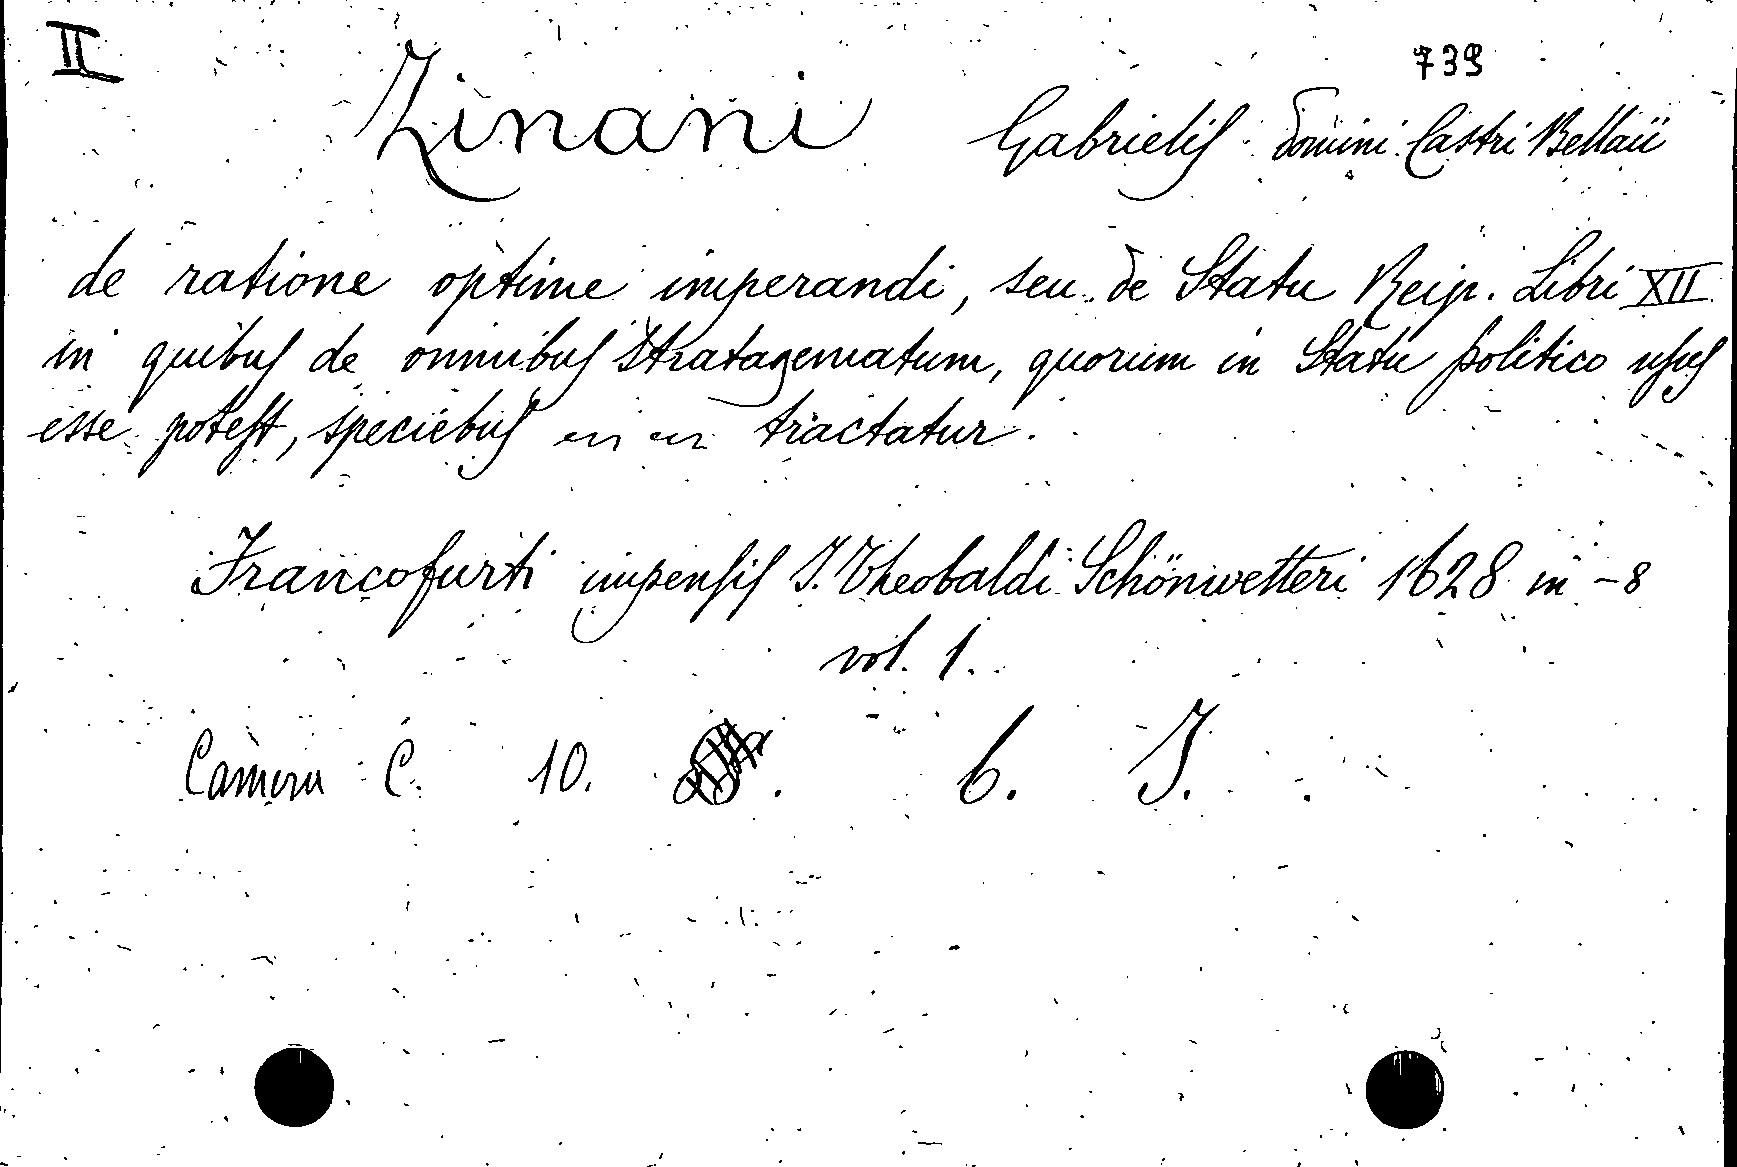 II
739
Zinani Gabrielis domini Castri Bellaii
de ratione optime imperandi, seu de Statu Reip. Libri XII
in quibus de omnibus Stratagematum, quorum in Statu politico usus
esse potest, speciebus tractatur.
Francofurti impensis J. Theobaldi Schönwetteri 1628 in -8
vol. 1.
Camera C. 10. 6. J.